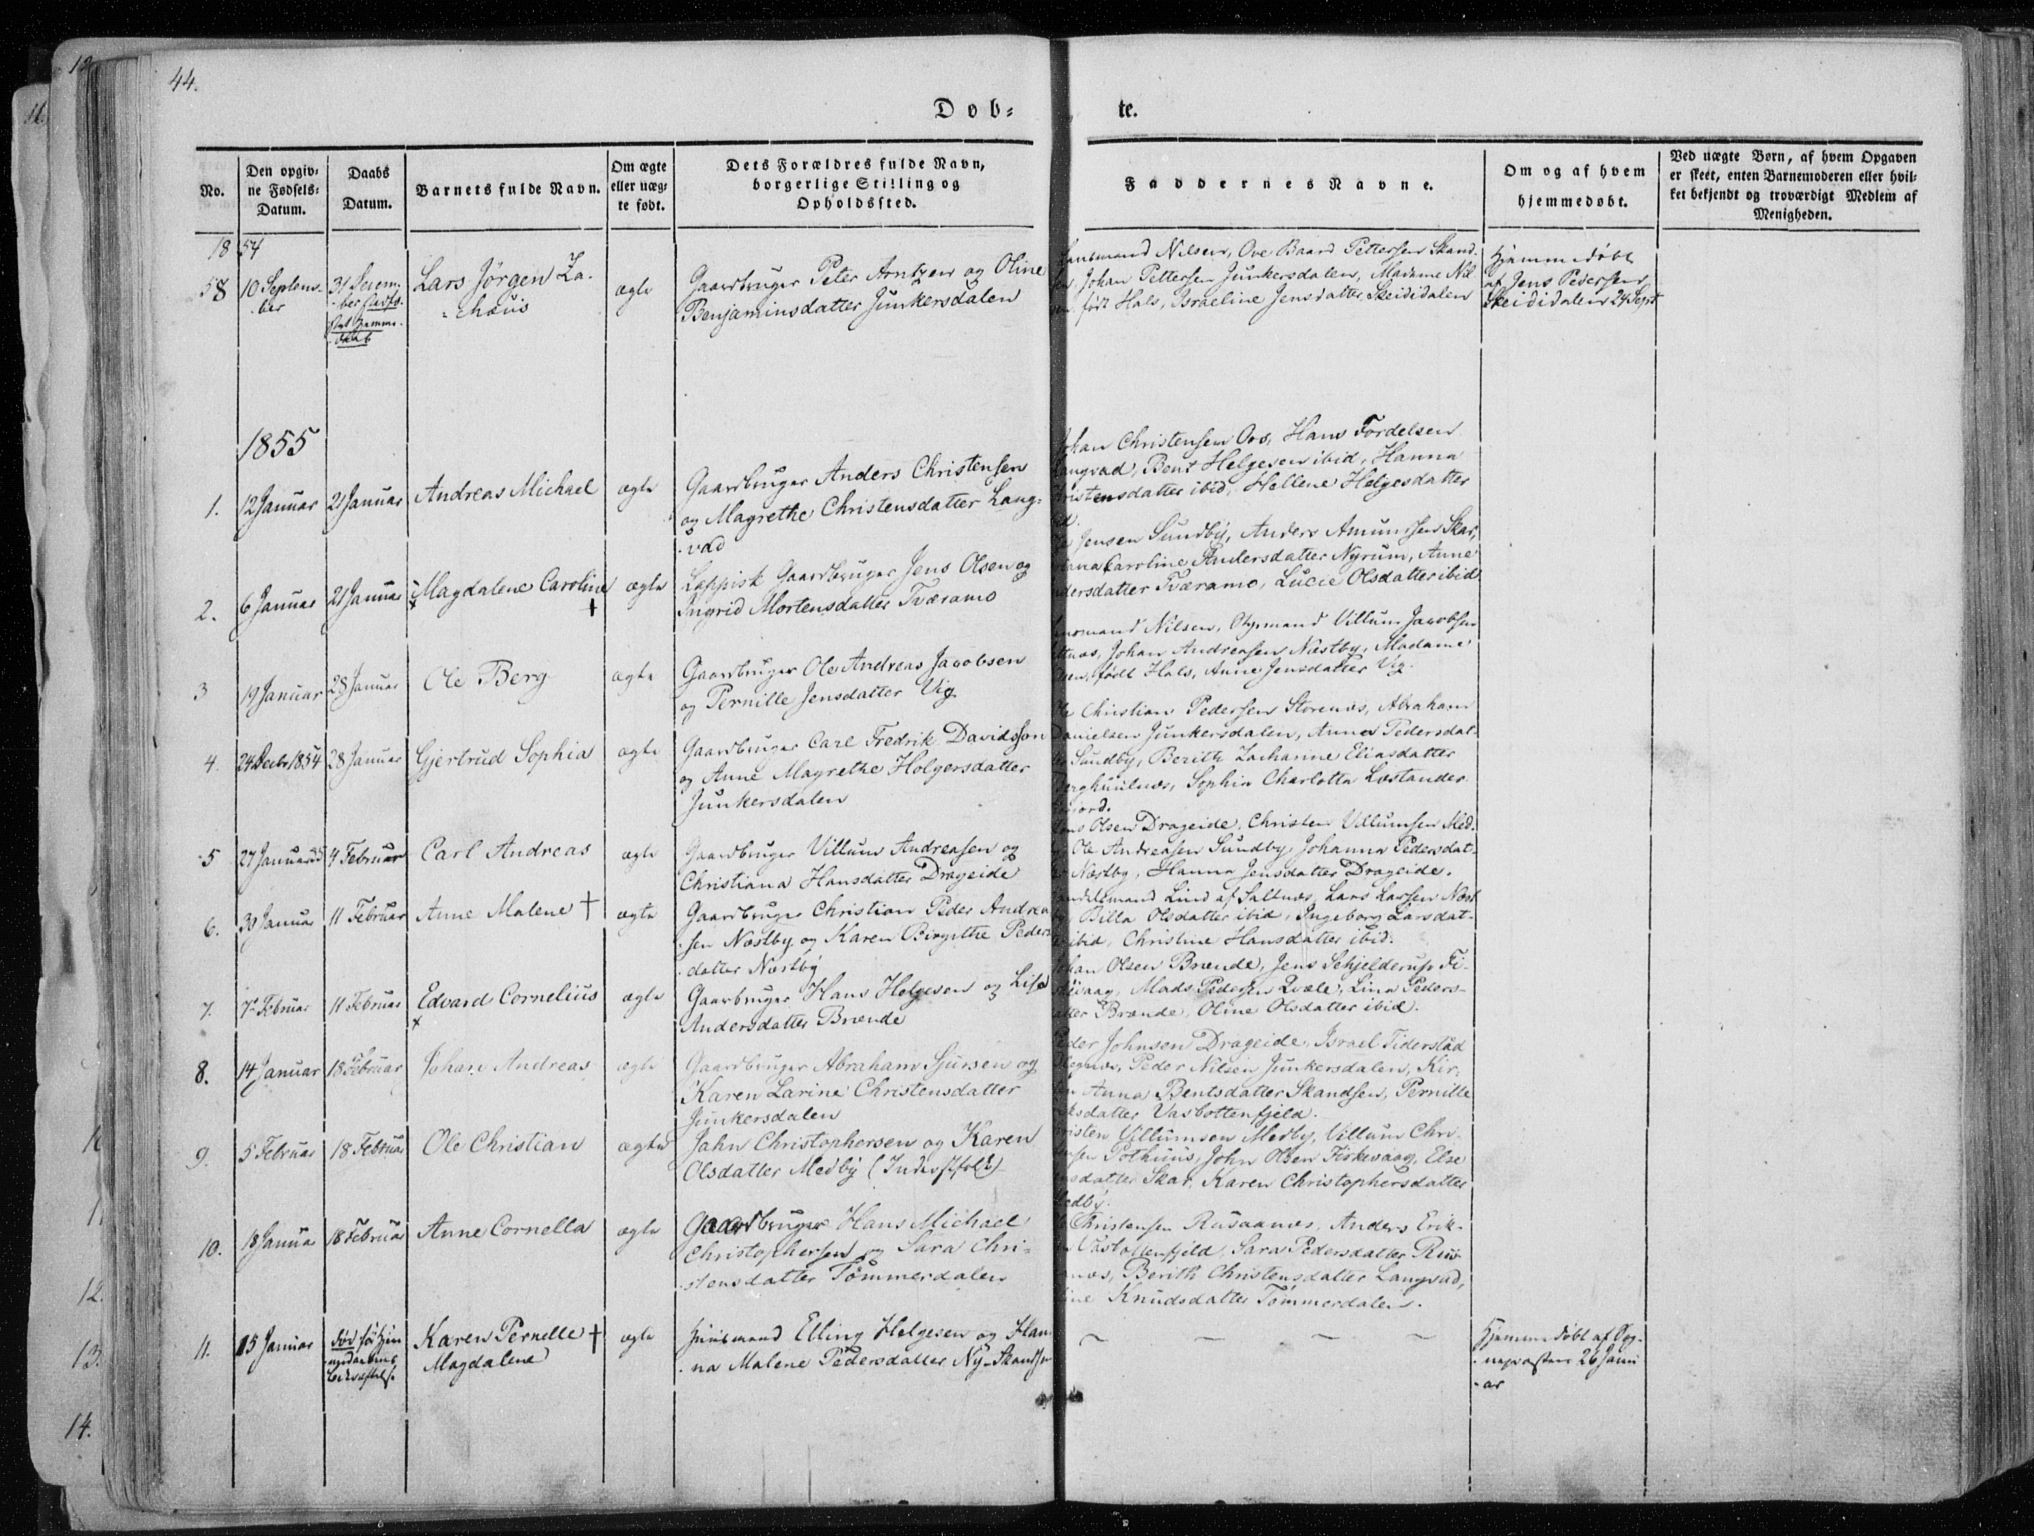 44.
Dob=
te.
No.
Den opgiv=
ne Fødsels=
Datum.
Daabs
Datum.
Barnets fulde Navn.
Om ægte
eller uæg=
te født.
Dets Forældres fulde Navn,
borgerlige Stilling og
Opholdssted.
Faddernes Navne.
Om og af hvem
hjemmedøbt.
Ved uægte Børn, af hvem Opgaven
er skeet, enten Barnemoderen eller hvil=
ket bekjendt og troværdigt Medlem af
Menigheden.
1854
58
10 Septem-
ber
31 Decem-
ber
Lars Jørgen Za-
chæus
ægte
Gaardbruger Peter Arntzen og Oline
Benjaminsdatter Junkersdalen
Nilsen, Ove Baard Pettersen Skand-
Johan Pettersen Junkersdalen, Madame Nil-
født Hals, Israeline Jensdatter Skeididalen
Hjemmedøbt
af Jens Pedersen
Skeididalen 24 Sept
1855
1.
12 Januar
21 Januar
Andreas Michael
ægte
Gaardbruger Anders Christensen
og Magrethe Christensdatter Lang-
vad
Johan Christensen Hans Tordelsen
Langvad, Bent Helgesen ibid, Hanna
Christensdatter ibid, Hellene Helgesdatter
2.
6 Januar
21 Januar
Magdalene Caroline
+
ægte
Lappisk Gaardbruger Jens Olsen og
Ingrid Mortensdatter Tværamo
Jensen Sundby, Anders Amundsen Skar,
Caroline Andersdatter Nyrum, Anne
dersdatter Tværamo, Lucie Olsdatter ibid
3
19 Januar
28 Januar
Ole Berg
ægte
Gaardbruger Ole Andreas Jacobsen
og Pernille Jensdatter Vig
Nilsen, Villum Jacobsen
Johan Andreasen Næstby, Madame
født Hals, Anne Jensdatter Vig.
4.
24 Decbr 1854
28 Januar
Gjertrud Sophia
ægte
Gaardbruger Carl Fredrik Davidsson
og Anne Magrethe Holgersdatter
Junkersdalen
Christian Pedersen Storenæs, Abraham
Danielsen Junkersdalen, Anna Pedersdat-
Sundby, Berith Zachanne Eliasdatter
Sophia Charlotta Læstander
5
27 Januar
4 Februar
Carl Andreas
ægte
Gaardbruger Villum Andreasen og
Christiana Hansdatter Drageide
Olsen Drageide, Christen Villumsen Med-
Ole Andreasen Sundby, Johanna Pedersdat-
Næstby, Hanna Jensdatter Drageide.
6.
30 Januar
11 Februar
Anne Malene +
ægte
Gaardbruger Christian Peder Andrea
sen Næstby og Karen Birgitthe Peders
datter Næstby
Handelsmand Lind af Saltnæs, Lars Larsen Næst
Billa Olsdatter ibid, Ingeborg Larsdat-
ibid, Christine Hansdatter ibid.
7.
7 Februar
11 Februar
Edvard Cornelius
ægte
Gaarbruger Hans Helgesen og Lisa
Andersdatter Brænde
Johan Olsen Brænde, Jens Schjelderup Fi-
skevaag, Mads Pedersen Qvale, Lina Peders-
datter Brænde, Oline Olsdatter ibid.
8.
14 Januar
18 Februar
Johan Andreas
ægte
Gaardbruger Abraham Sjursen og
Karen Larine Christensdatter
Junkersdalen
Peder Johnsen Drageide, Israel Tiderstad
Peder Nilsen Junkersdalen, Kir-
Anna Bentsdatter Skandsen, Pernille
datter Vasbottenfjeld.
9.
5 Februar
18 Februar
Ole Christian
ægte
Jahn Christophersen og Karen
Olsdatter Medby (Inderstfolk)
Christen Villumsen Medby, Villum Chri-
stensen Pothuus, John Olsen Fiskevaag, Else
datter Skar, Karen Christophersdatter
Medby.
10.
18 Januar
18 Februar
Anne Cornella
ægte
Gaardbruger Hans Michael
Christophersen og Sara Chri-
stensdatter Tømmerdalen
Christensen Rusaanæs, Anders Erik-
Vasbottenfjeld, Sara Pedersdatter Rus-
Berith Christensdatter Langvad,
Knudsdatter Tømmerdalen.
11.
15 Januar
Karen Pernelle +
Magdalene
ægte
Huusmand Elling Helgesen og Han-
na Malene Pedersdatter Ny-Skandsen
Hjemmedøbt af Sog-
nepræsten 26 Janu
ar
12.
13.
14.